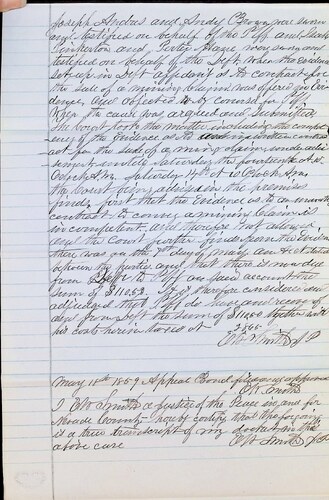 Joseph Andres and Andy Brown were sworn
and testified on behalf of the Plff and
and Peter Hague were sworn and
testified on behalf of the Deft. When the evidence
set up in Deft affidavit as to contract for
the sale of a mining claim was offered in evi-
dence, and objected to by counsel for Plff
the cause was argued and submitted
The Court took the matter including the compet-
ency of the evidence as to
act for the sale of a mining claim under advi-
sement until Saturday the fourteenth at 10
Oclock A.M. Saturday 14th at 10 Oclock A.m.
the Court being advised in the premises
finds first that the Evidence as to an
contract to convey a mining claim is
incompetent and therefore not allowed
and the Court further finds from the Evidence
there was on the 7th day of May an
between the parties and that there is now due
from Deft to Plff on said account the
sum of $110.52. It is therefore considered and
adjudged that Plff do have and recover of
and from Deft the sum of together with
his costs herein taxed at
Smith J P
May 18th 1859 Appeal Bond filed and approved
Smith
I Smith a Justice of the Peace in and for
Nevada County hereby certify that the foregoing
is a true transcript of my docket in the
above case Smith J P